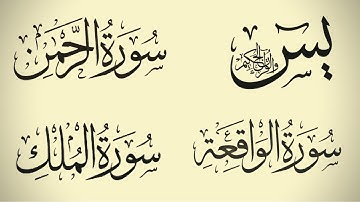 يس والقرآن الحكيم
سُورَةُ الرَّحْمَن
سُورَةُ الوَاقِعَةِ
سُورَةُ المُلْكِ